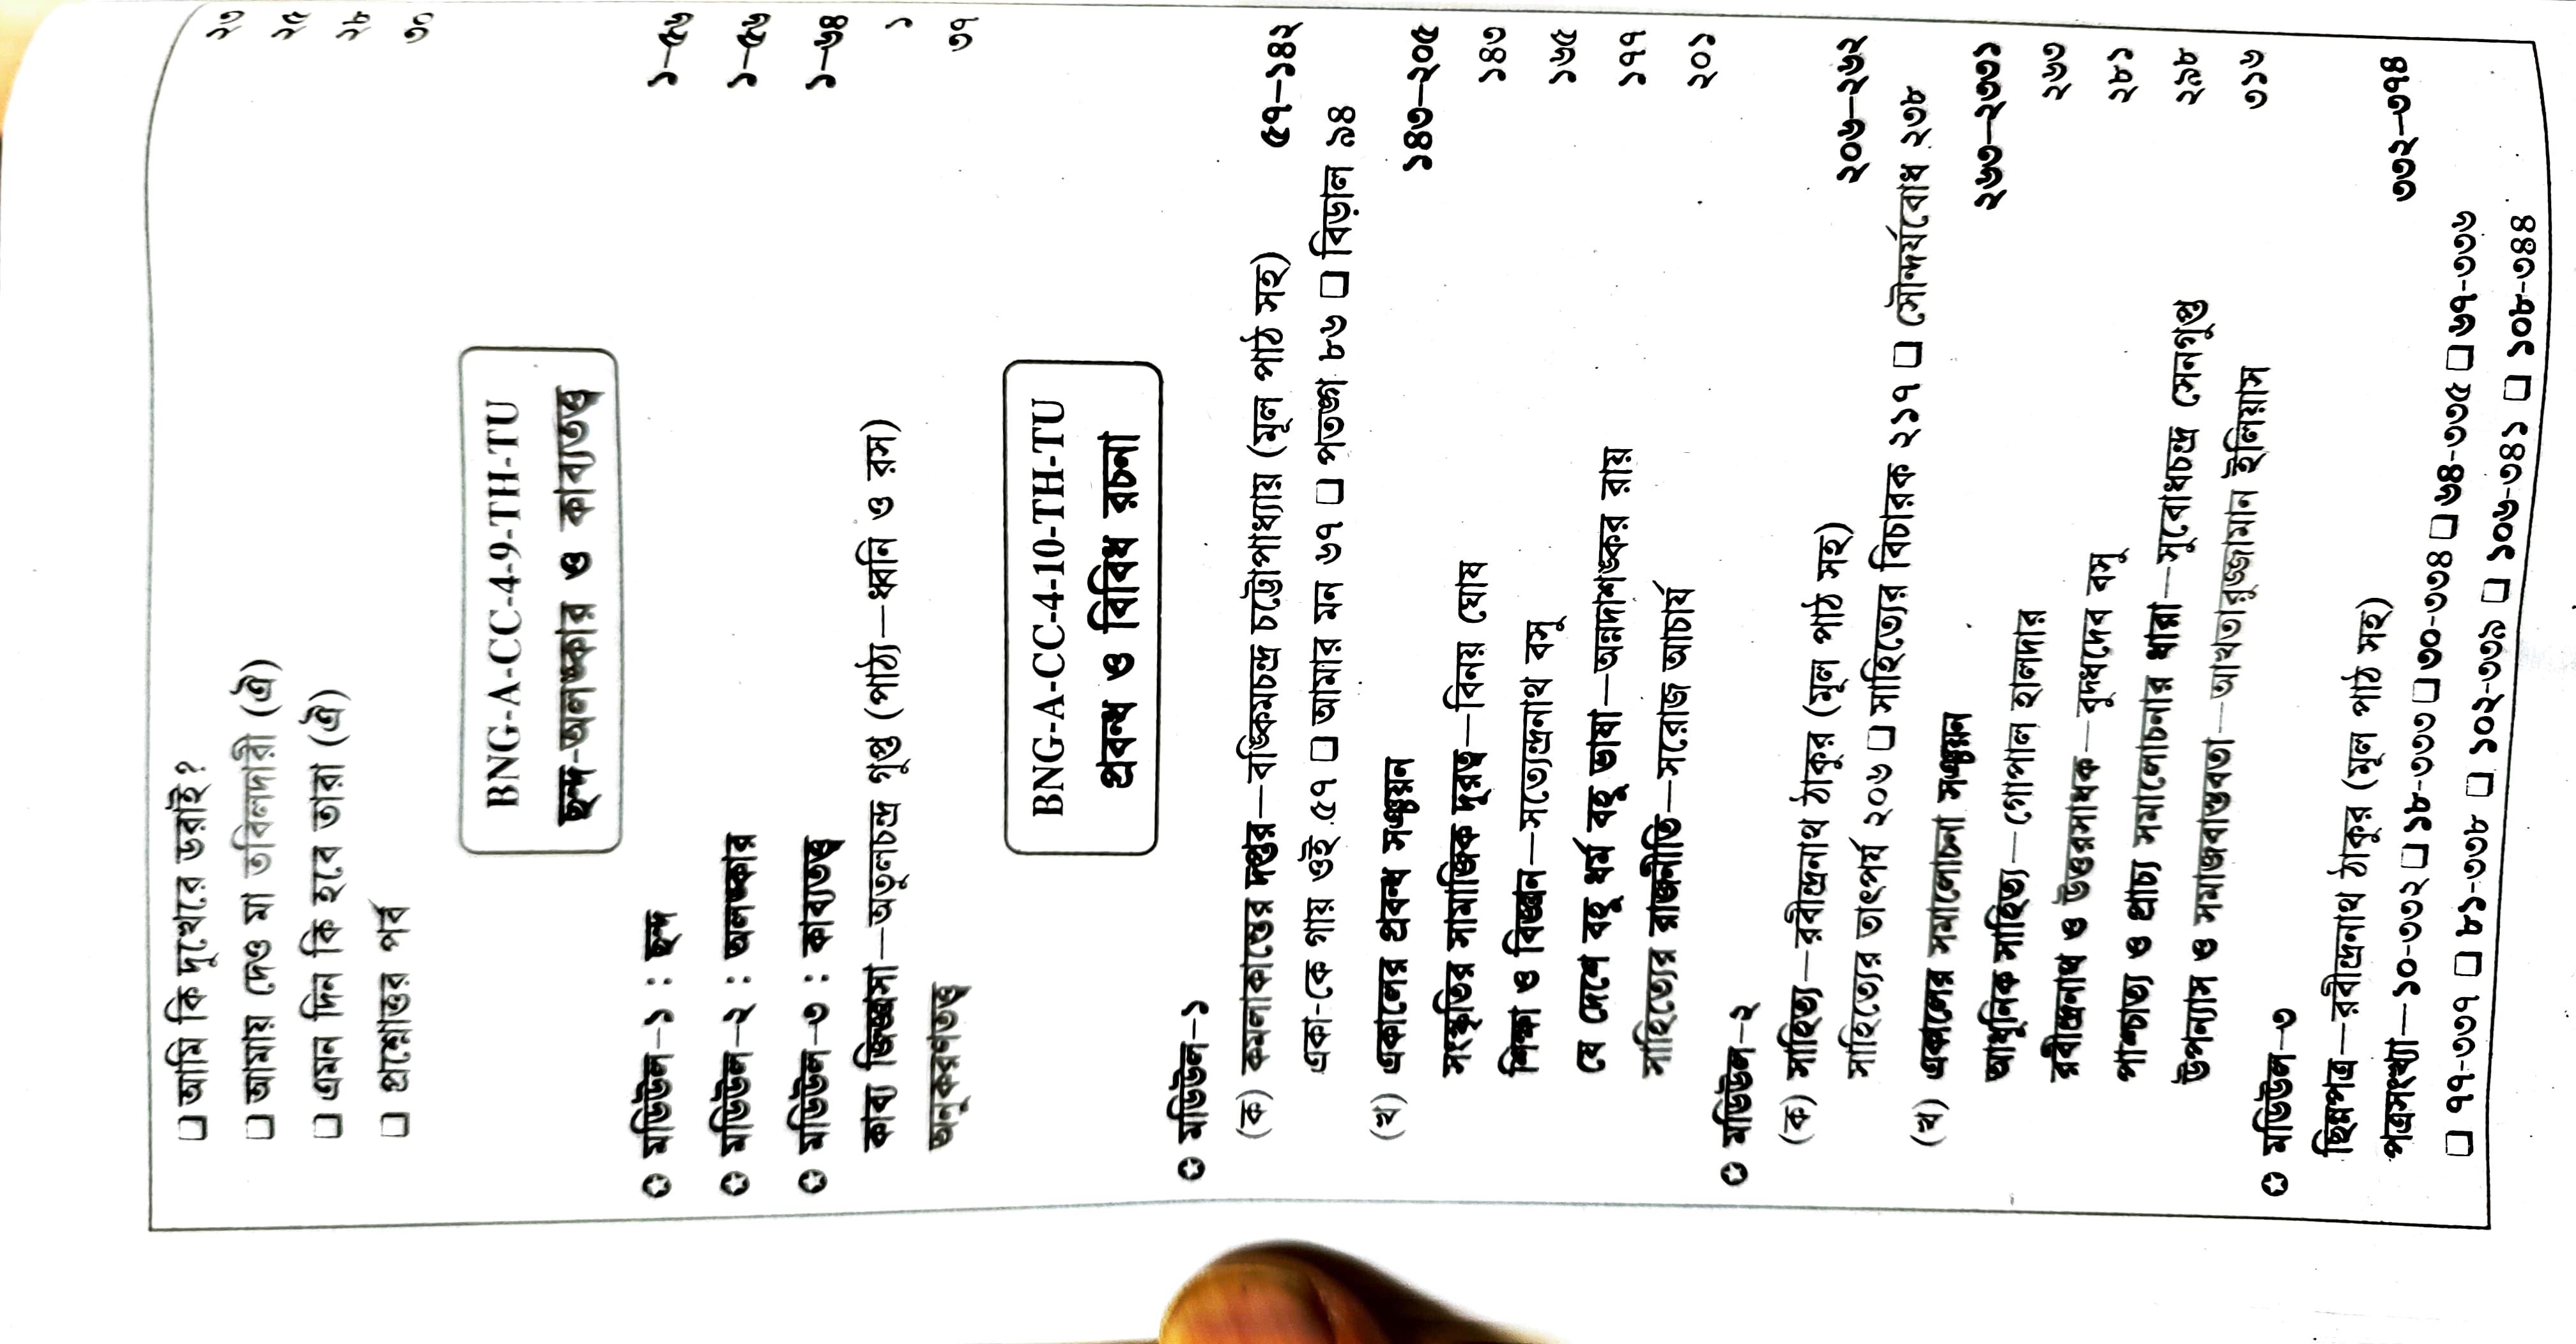 ❑ আমি কি দুখেরে ডরাই? ২৩
❑ আমায় দেও মা তবিলদারী (ঐ) ২৫
❑ এমন দিন কি হবে তারা (ঐ) ২৮
❑ প্রশ্নোত্তর পর্ব ৩০
BNG-A-CC-4-9-TH-TU
ছন্দ-অলঙ্কার ও কাব্যতত্ত্ব
✪ মডিউল–১ : ছন্দ ১–৫৬
✪ মডিউল–২ : অলঙ্কার ১–৫৬
✪ মডিউল–৩ : কাব্যতত্ত্ব ১–৬৪
কাব্য জিজ্ঞাসা—অতুলচন্দ্র গুপ্ত (পাঠ্য—ধ্বনি ও রস) ১
অনুকরণতত্ত্ব ৩৭
BNG-A-CC-4-10-TH-TU
প্রবন্ধ ও বিবিধ রচনা
✪ মডিউল–১
(ক) কমলাকান্তের দপ্তর—বঙ্কিমচন্দ্র চট্টোপাধ্যায় (মূল পাঠ সহ) ৫৭–১৪২
একা-কে গায় ওই ৫৭ ❑ আমার মন ৬৭ ❑ পতঙ্গ ৮৬ ❑ বিড়াল ৯৪
(খ) একালের প্রবন্ধ সঞ্চয়ন ১৪৩–২০৫
সংস্কৃতির সামাজিক দূরত্ব—বিনয় ঘোষ ১৪৩
শিক্ষা ও বিজ্ঞান—সত্যেন্দ্রনাথ বসু ১৬৫
যে দেশে বহু ধর্ম বহু ভাষা—অন্নদাশঙ্কর রায় ১৭৭
সাহিত্যের রাজনীতি—সরোজ আচার্য ২০১
✪ মডিউল–২
(ক) সাহিত্য—রবীন্দ্রনাথ ঠাকুর (মূল পাঠ সহ) ২০৬–২৬২
সাহিত্যের তাৎপর্য ২০৬ ❑ সাহিত্যের বিচারক ২১৭ ❑ সৌন্দর্যবোধ ২৩৮
(খ) একালের সমালোচনা সঞ্চয়ন ২৬৩–২৩৩১
আধুনিক সাহিত্য—গোপাল হালদার ২৬৩
রবীন্দ্রনাথ ও উত্তরসাধক—বুদ্ধদেব বসু ২৮১
পাশ্চাত্য ও প্রাচ্য সমালোচনার ধারা—সুবোধচন্দ্র সেনগুপ্ত ২৯৮
উপন্যাস ও সমাজবাস্তবতা—আখতারুজ্জামান ইলিয়াস ৩১৬
✪ মডিউল–৩
ছিন্নপত্র—রবীন্দ্রনাথ ঠাকুর (মূল পাঠ সহ) ৩৩২–৩৭৪
পত্রসংখ্যা—১০-৩৩২ ❑ ১৮-৩৩৩ ❑ ৩০-৩৩৪ ❑ ৬৪-৩৩৫ ❑ ৬৭-৩৩৬
❑ ৭৭-৩৩৭ ❑ ৮১-৩৩৮ ❑ ১০২-৩৩৯ ❑ ১০৬-৩৪১ ❑ ১০৮-৩৪৪